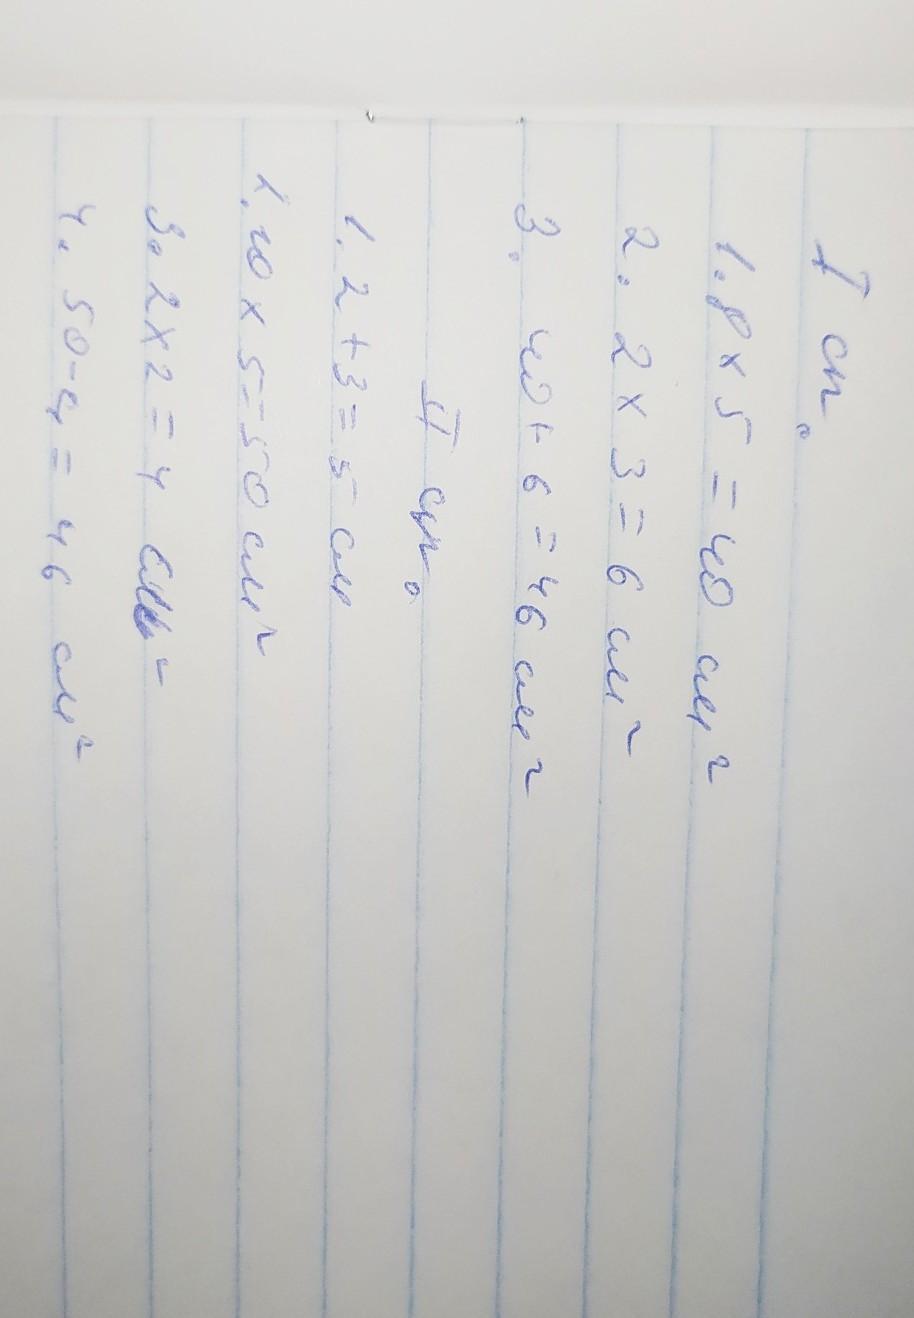 I сп.
1. 8 х 5 = 40 см²
2. 2 х 3 = 6 см²
3. 40 + 6 = 46 см²
II сп.
1. 2 + 3 = 5 см
1. 10 х 5 = 50 см²
3. 2 х 2 = 4 см²
4. 50 - 4 = 46 см²